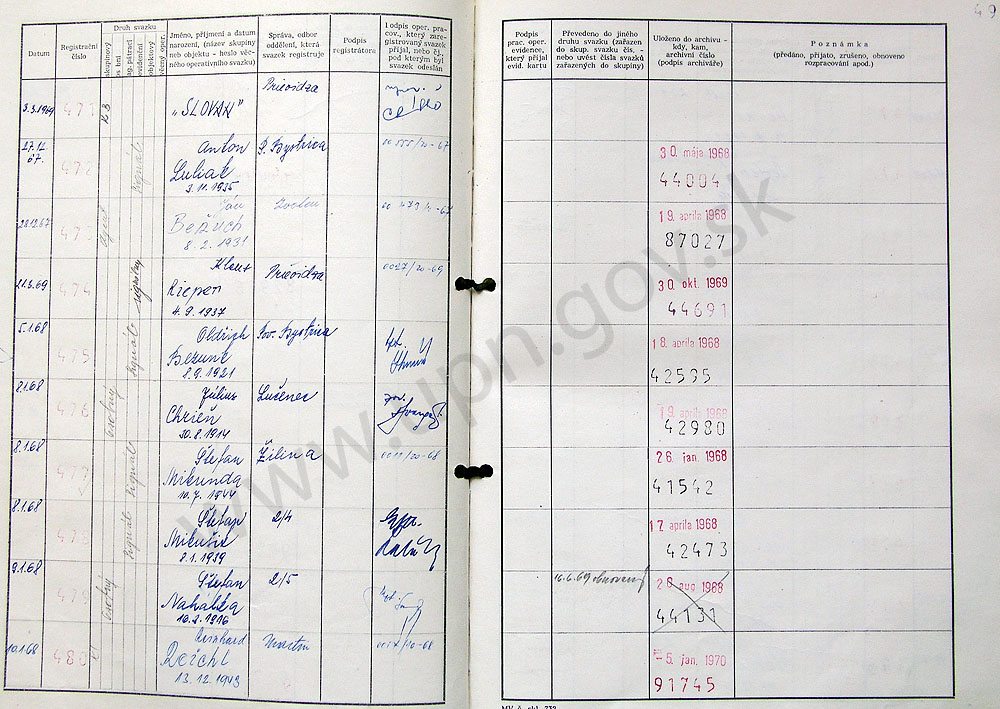 49
Datum
Registrační číslo
Druh svazku
Jméno, příjmení a datum narození, (název skupiny neb objektu - heslo věcného operativního svazku)
Správa, odbor oddělení, která svazek registruje
Podpis registrátora
Podpis oper. pracov., který zaregistrovaný svazek přijal, nebo čj. pod kterým byl svazek odeslán
Podpis prac. oper. evidence, který přijal evid. kartu
Převedeno do jiného druhu svazku (zařazen do skup. svazku čís. - nebo uvést čísla svazků zařazených do skupiny)
Uloženo do archivu - kdy, kam, archivní číslo (podpis archiváře)
Poznámka
(předáno, přijato, zrušeno, obnoveno rozpracování apod.)
3.3.1969 471 "SLOVAN" Prievidza
27.12.67. 472 signál Anton Luliak 3.11.1935 P. Bystrica 30. mája 1968 44004
28.12.67 473 Ján Bežuch 8.2.1931 Zvolen 19. apríla 1968 87027
21.3.69 474 signálny Klaus Rieper 4.9.1937 Prievidza 0027/20-69 30. okt. 1969 44691
5.1.68 475 signál Oldrich 8.9.1921 Pov. Bystrica 18. apríla 1968 42595
8.1.68 476 osobný Július Chrien 30.8.1914 Lučenec 19. apríla 1968 42980
8.1.68 477 signál Štefan Mikunda 10.7.1944 Žilina 0011/20-68 26. jan. 1968 41542
8.1.68 478 signál Štefan Mikušik 8.1.1939 2/4 17. apríla 1968 42473
9.1.68 479 osobný Štefan Nahálka 10.2.1916 2/5 16.6.69 obnovený 20. aug 1968 44131
10.1.68 480 Reinhard Reichl 13.12.1943 Martin -5. jan. 1970 91745
www.upn.gov.sk